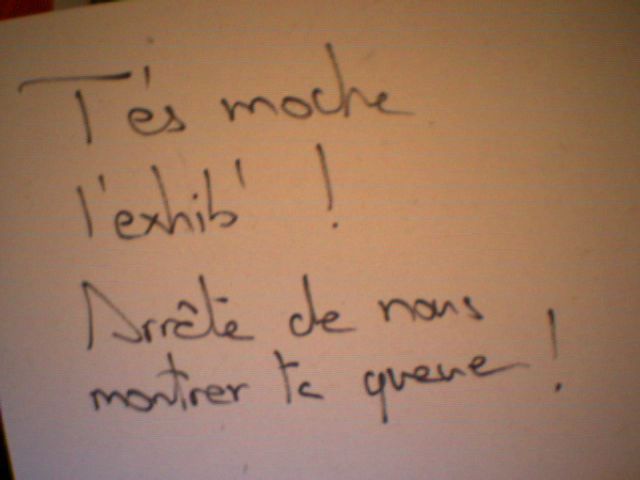 T'es moche
l'exhib' !
Arrête de nous
montrer ta queue !